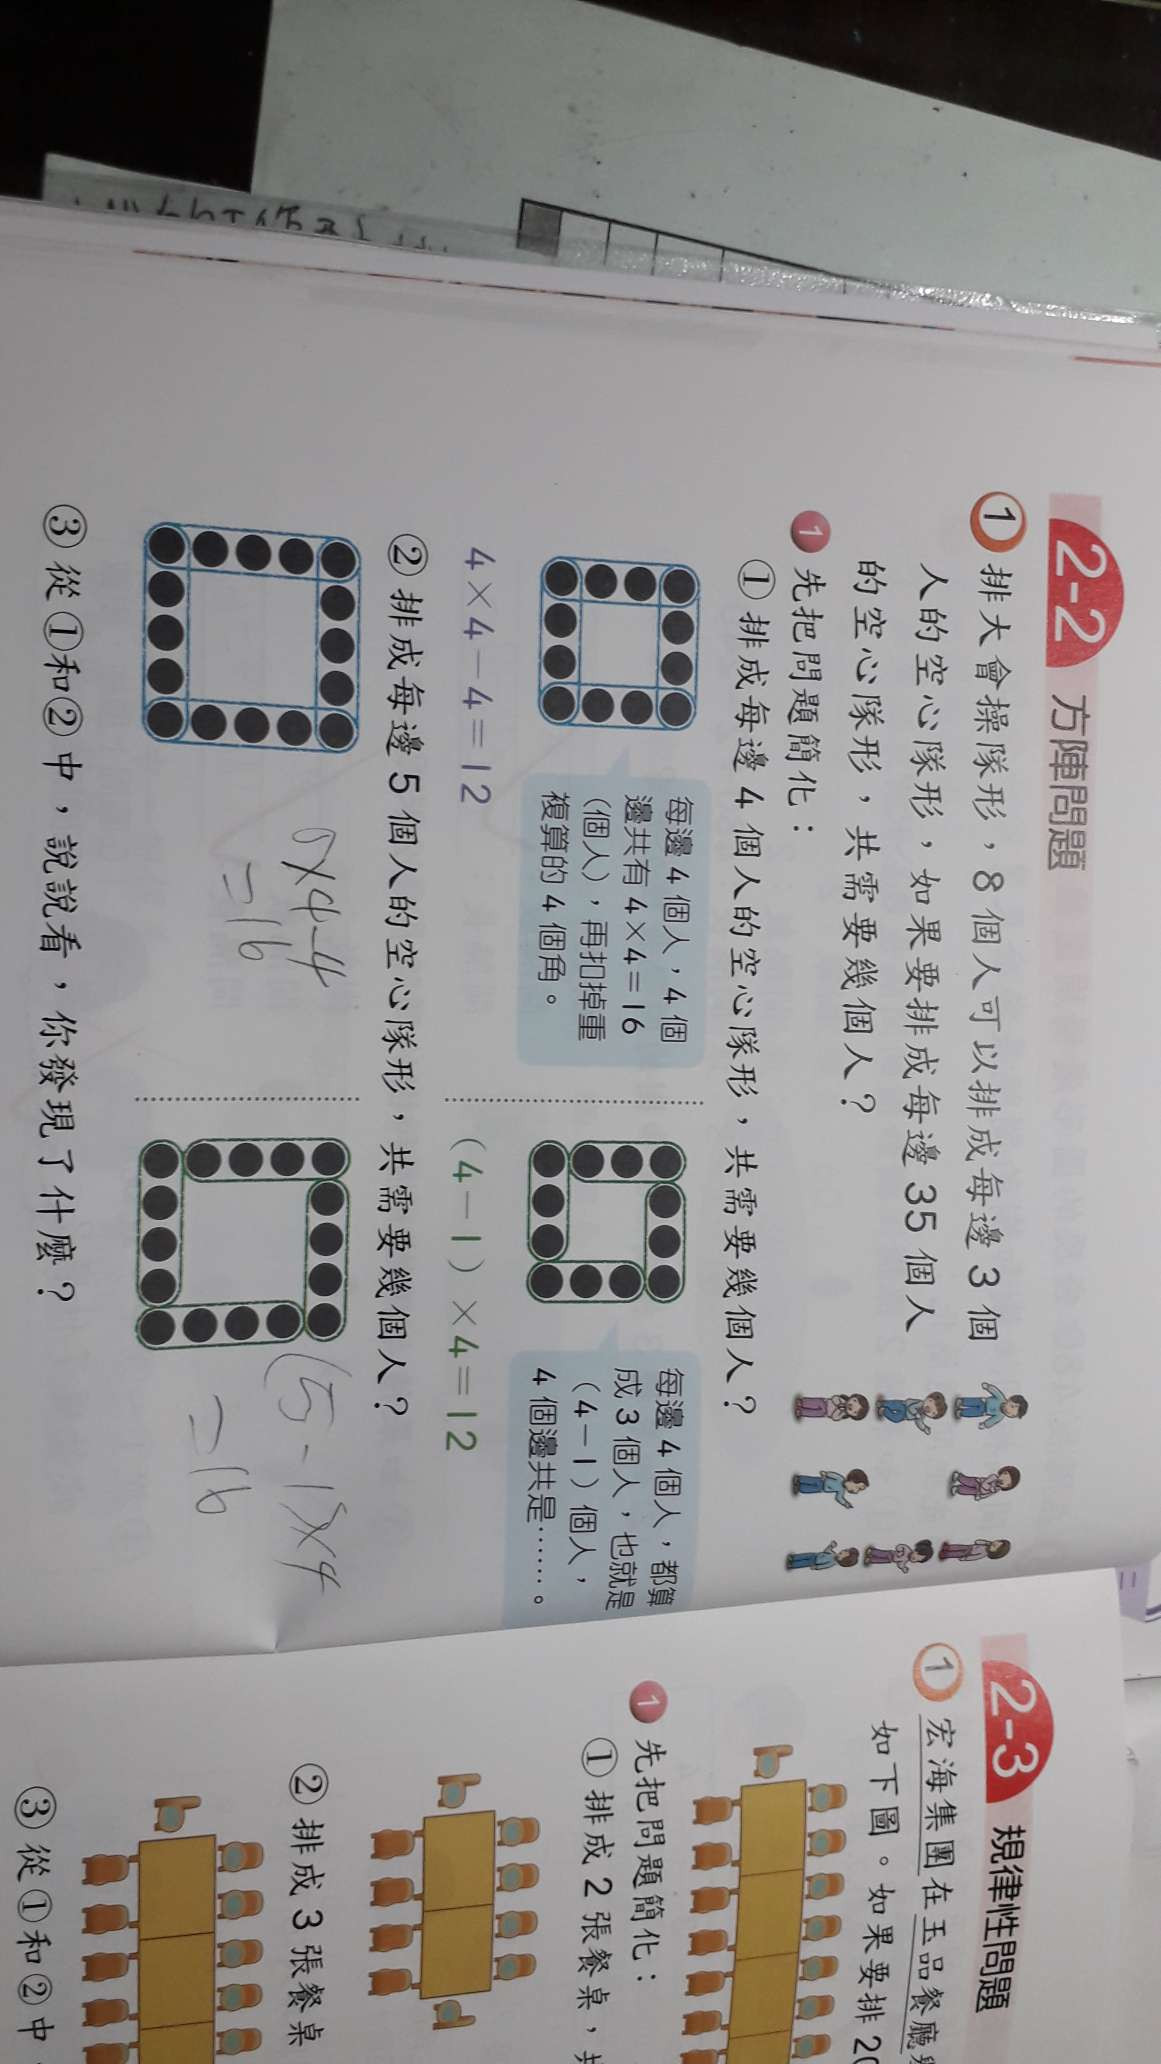 2-2 方陣問題
1 排大會操隊形，8個人可以排成每邊3個
人的空心隊形，如果要排成每邊35個人
的空心隊形，共需要幾個人？
1 先把問題簡化：
① 排成每邊4個人的空心隊形，共需要幾個人？
每邊4個人，4個
邊共有4×4=16
（個人），再扣掉重
複算的4個角。
4×4－4=12
每邊4個人，都算
成3個人，也就是
（4－1）個人，
4個邊共是……。
（4－1）×4=12
② 排成每邊5個人的空心隊形，共需要幾個人？
×4-4
=16
(5-1)×4
=16
③ 從①和②中，說說看，你發現了什麼？
2-3 規律性問題
1 宏海集團在玉品餐廳
如下圖。如果要排20
1 先把問題簡化：
① 排成2張餐桌，
② 排成3張餐桌
③ 從①和②中